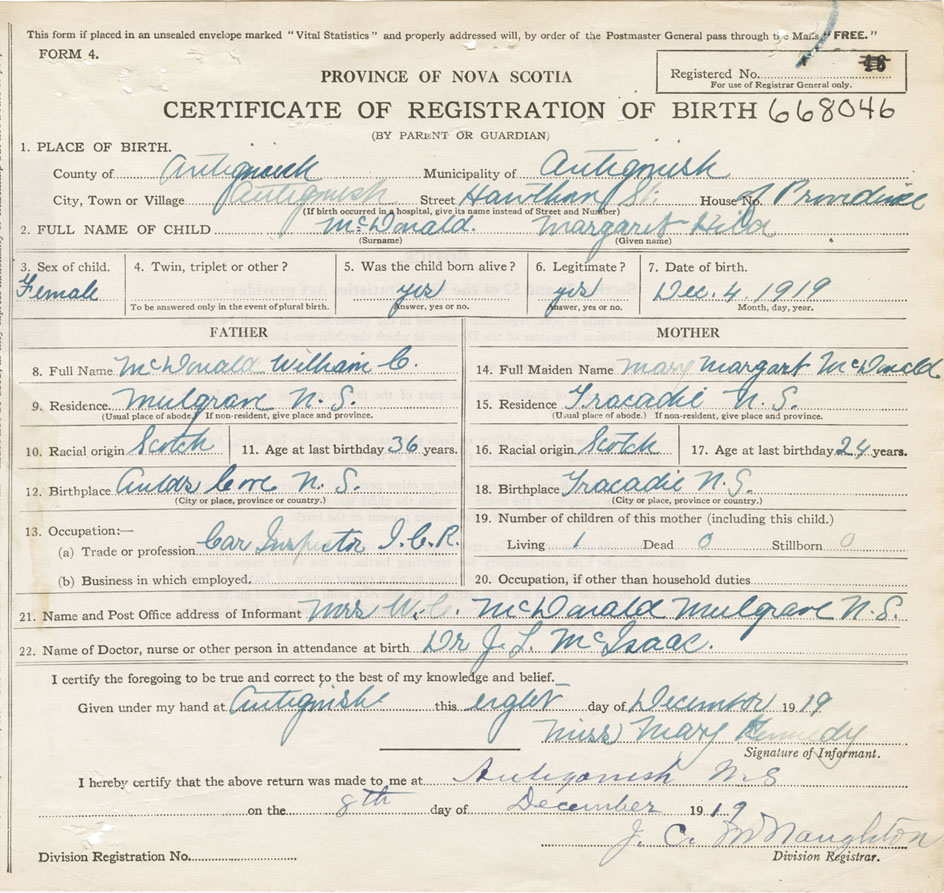 This form if placed in an unsealed envelope marked "Vital Statistics" and properly addressed will, by order of the Postmaster General pass through the Mails "FREE."
FORM 4.
PROVINCE OF NOVA SCOTIA
Registered No. 46
For use of Registrar General only.
CERTIFICATE OF REGISTRATION OF BIRTH 668046
(BY PARENT OR GUARDIAN)
1. PLACE OF BIRTH.
County of Antigonish Municipality of Antigonish
City, Town or Village Antigonish Street Hawthorn St. House No. of Providence
(If birth occurred in a hospital, give its name instead of Street and Number)
2. FULL NAME OF CHILD McDonald. Margaret Hilda
(Surname) (Given name)
3. Sex of child. 4. Twin, triplet or other? 5. Was the child born alive? 6. Legitimate? 7. Date of birth.
Female yes yes Dec. 4 1919
To be answered only in the event of plural birth. Answer, yes or no. Answer, yes or no. Month, day, year.
FATHER MOTHER
8. Full Name McDonald William C. 14. Full Maiden Name Mary Margart McDonald
9. Residence Mulgrave N.S. 15. Residence Tracadie N.S.
(Usual place of abode.) If non-resident, give place and province. (Usual place of abode.) If non-resident, give place and province.
10. Racial origin Scotch 11. Age at last birthday 36 years. 16. Racial origin Scotch 17. Age at last birthday 24 years.
12. Birthplace Aulds Cove N.S. 18. Birthplace Tracadie N.S.
(City or place, province or country.) (City or place, province or country.)
13. Occupation:— 19. Number of children of this mother (including this child.)
(a) Trade or profession Car Inspector I.C.R. Living 1 Dead 0 Stillborn 0
(b) Business in which employed. 20. Occupation, if other than household duties
21. Name and Post Office address of Informant Mrs W.C. McDonald Mulgrave N.S.
22. Name of Doctor, nurse or other person in attendance at birth Dr J.L. McIsaac.
I certify the foregoing to be true and correct to the best of my knowledge and belief.
Given under my hand at Antigonish this eight day of December 1919
Miss Mary Kennedy
Signature of Informant.
I hereby certify that the above return was made to me at Antigonish N.S
on the 8th day of December 1919
J. C. McNaughton
Division Registration No. Division Registrar.